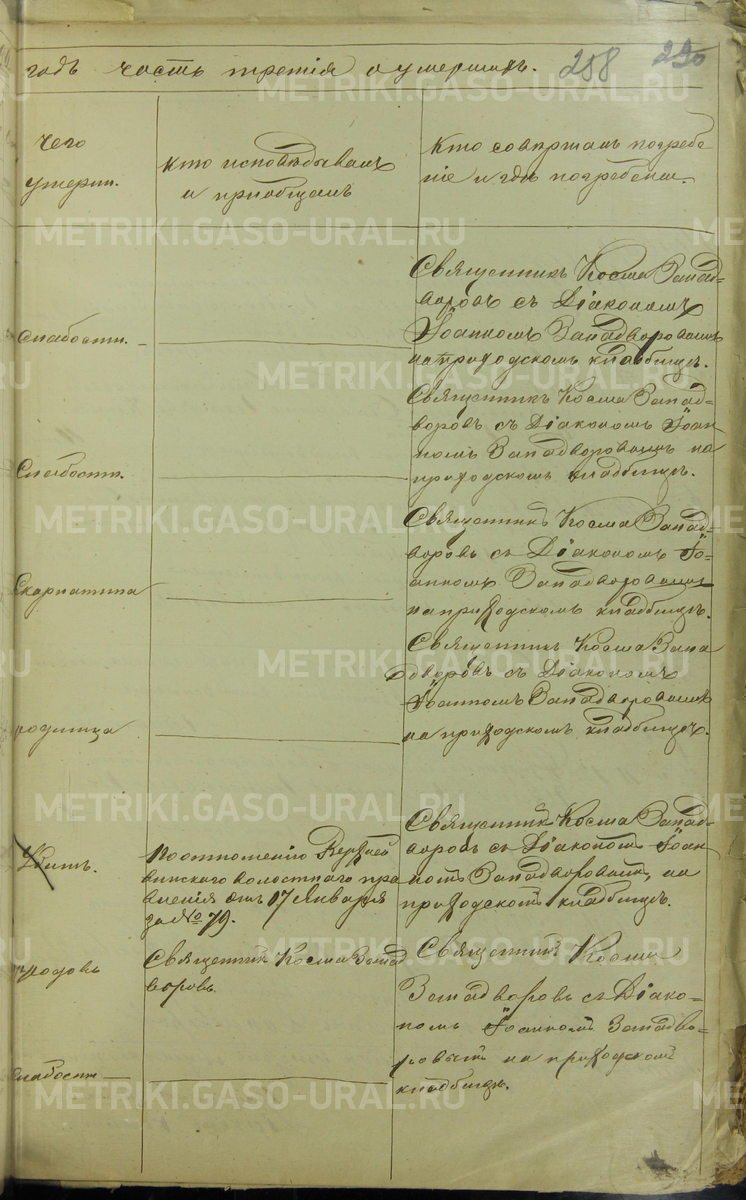 годъ часть третія о умершихъ. 258 230
Чего
умерли.
Кто исповѣдывалъ
и пріобщалъ
Кто совершалъ погребе
ніе и гдѣ погребены.
Священникъ Косма Запад=
воровъ съ Діакономъ
Слабости.
Іоанномъ Западворовымъ
на приходскомъ кладбищѣ.
Священникъ Косма Запад=
воровъ съ Діакономъ Іоан
номъ Западворовымъ на
Слабости.
приходскомъ кладбищѣ.
Священникъ Косма Запад=
воровъ съ Діакономъ Іо=
анномъ Западворовымъ
Скарлатина
на приходскомъ кладбищѣ.
Священникъ Косма Запа
дворовъ съ Діакономъ
Іоанномъ Западворовымъ
родимца
на приходскомъ кладбищѣ.
Убитъ.
По отношенію Верхней
винскаго волостнаго пра
вленія отъ 17 Января
за № 79.
Священникъ Косма Запад=
воровъ съ Діакономъ Іоан
номъ Западворовымъ на
приходскомъ кладбищѣ.
родовъ
Священникъ Косма Запад
воровъ
Священникъ Косма
Западворовъ съ Діако=
номъ Іоанномъ Западво=
ровымъ на приходскомъ
кладбищѣ.
слабости
METRIKI.GASO-URAL.RU